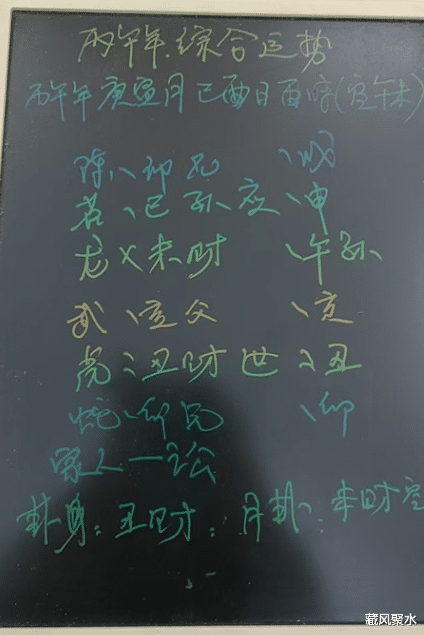 丙午年.综合运势
丙午年庚寅月己酉日酉时(空午未)
陈、卯兄 、戌
、巳孙应 、申
龙乂未财 、午孙
武、亥父 、亥
丑财世 丑
蛇、卯兄 、卯
家人一讼
卦身:丑财:月卦:未财空
藏风聚水